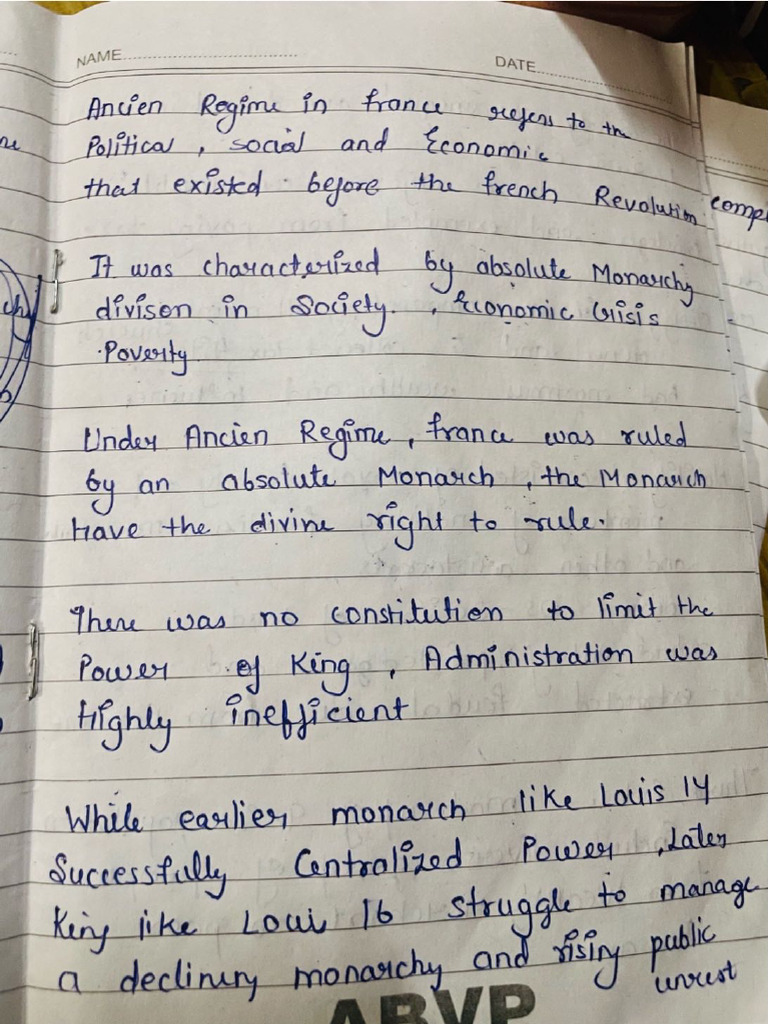 NAME
DATE
Ancien Regime in france refers to the
Political, social and Economic
that existed before the french Revolution
It was characterized by absolute Monarchy
divison in Society. , Economic Crisis
Poverty
Under Ancien Regime, france was ruled
by an absolute Monarch, the Monarch
Have the divine right to rule.
There was no constitution to limit the
Power of King, Administration was
Highly inefficient
While earlier monarch like Louis 14
Successfully Centralized Power, Later
King like Loui 16 struggle to manage
a declining monarchy and rising public
unrest
ABVP